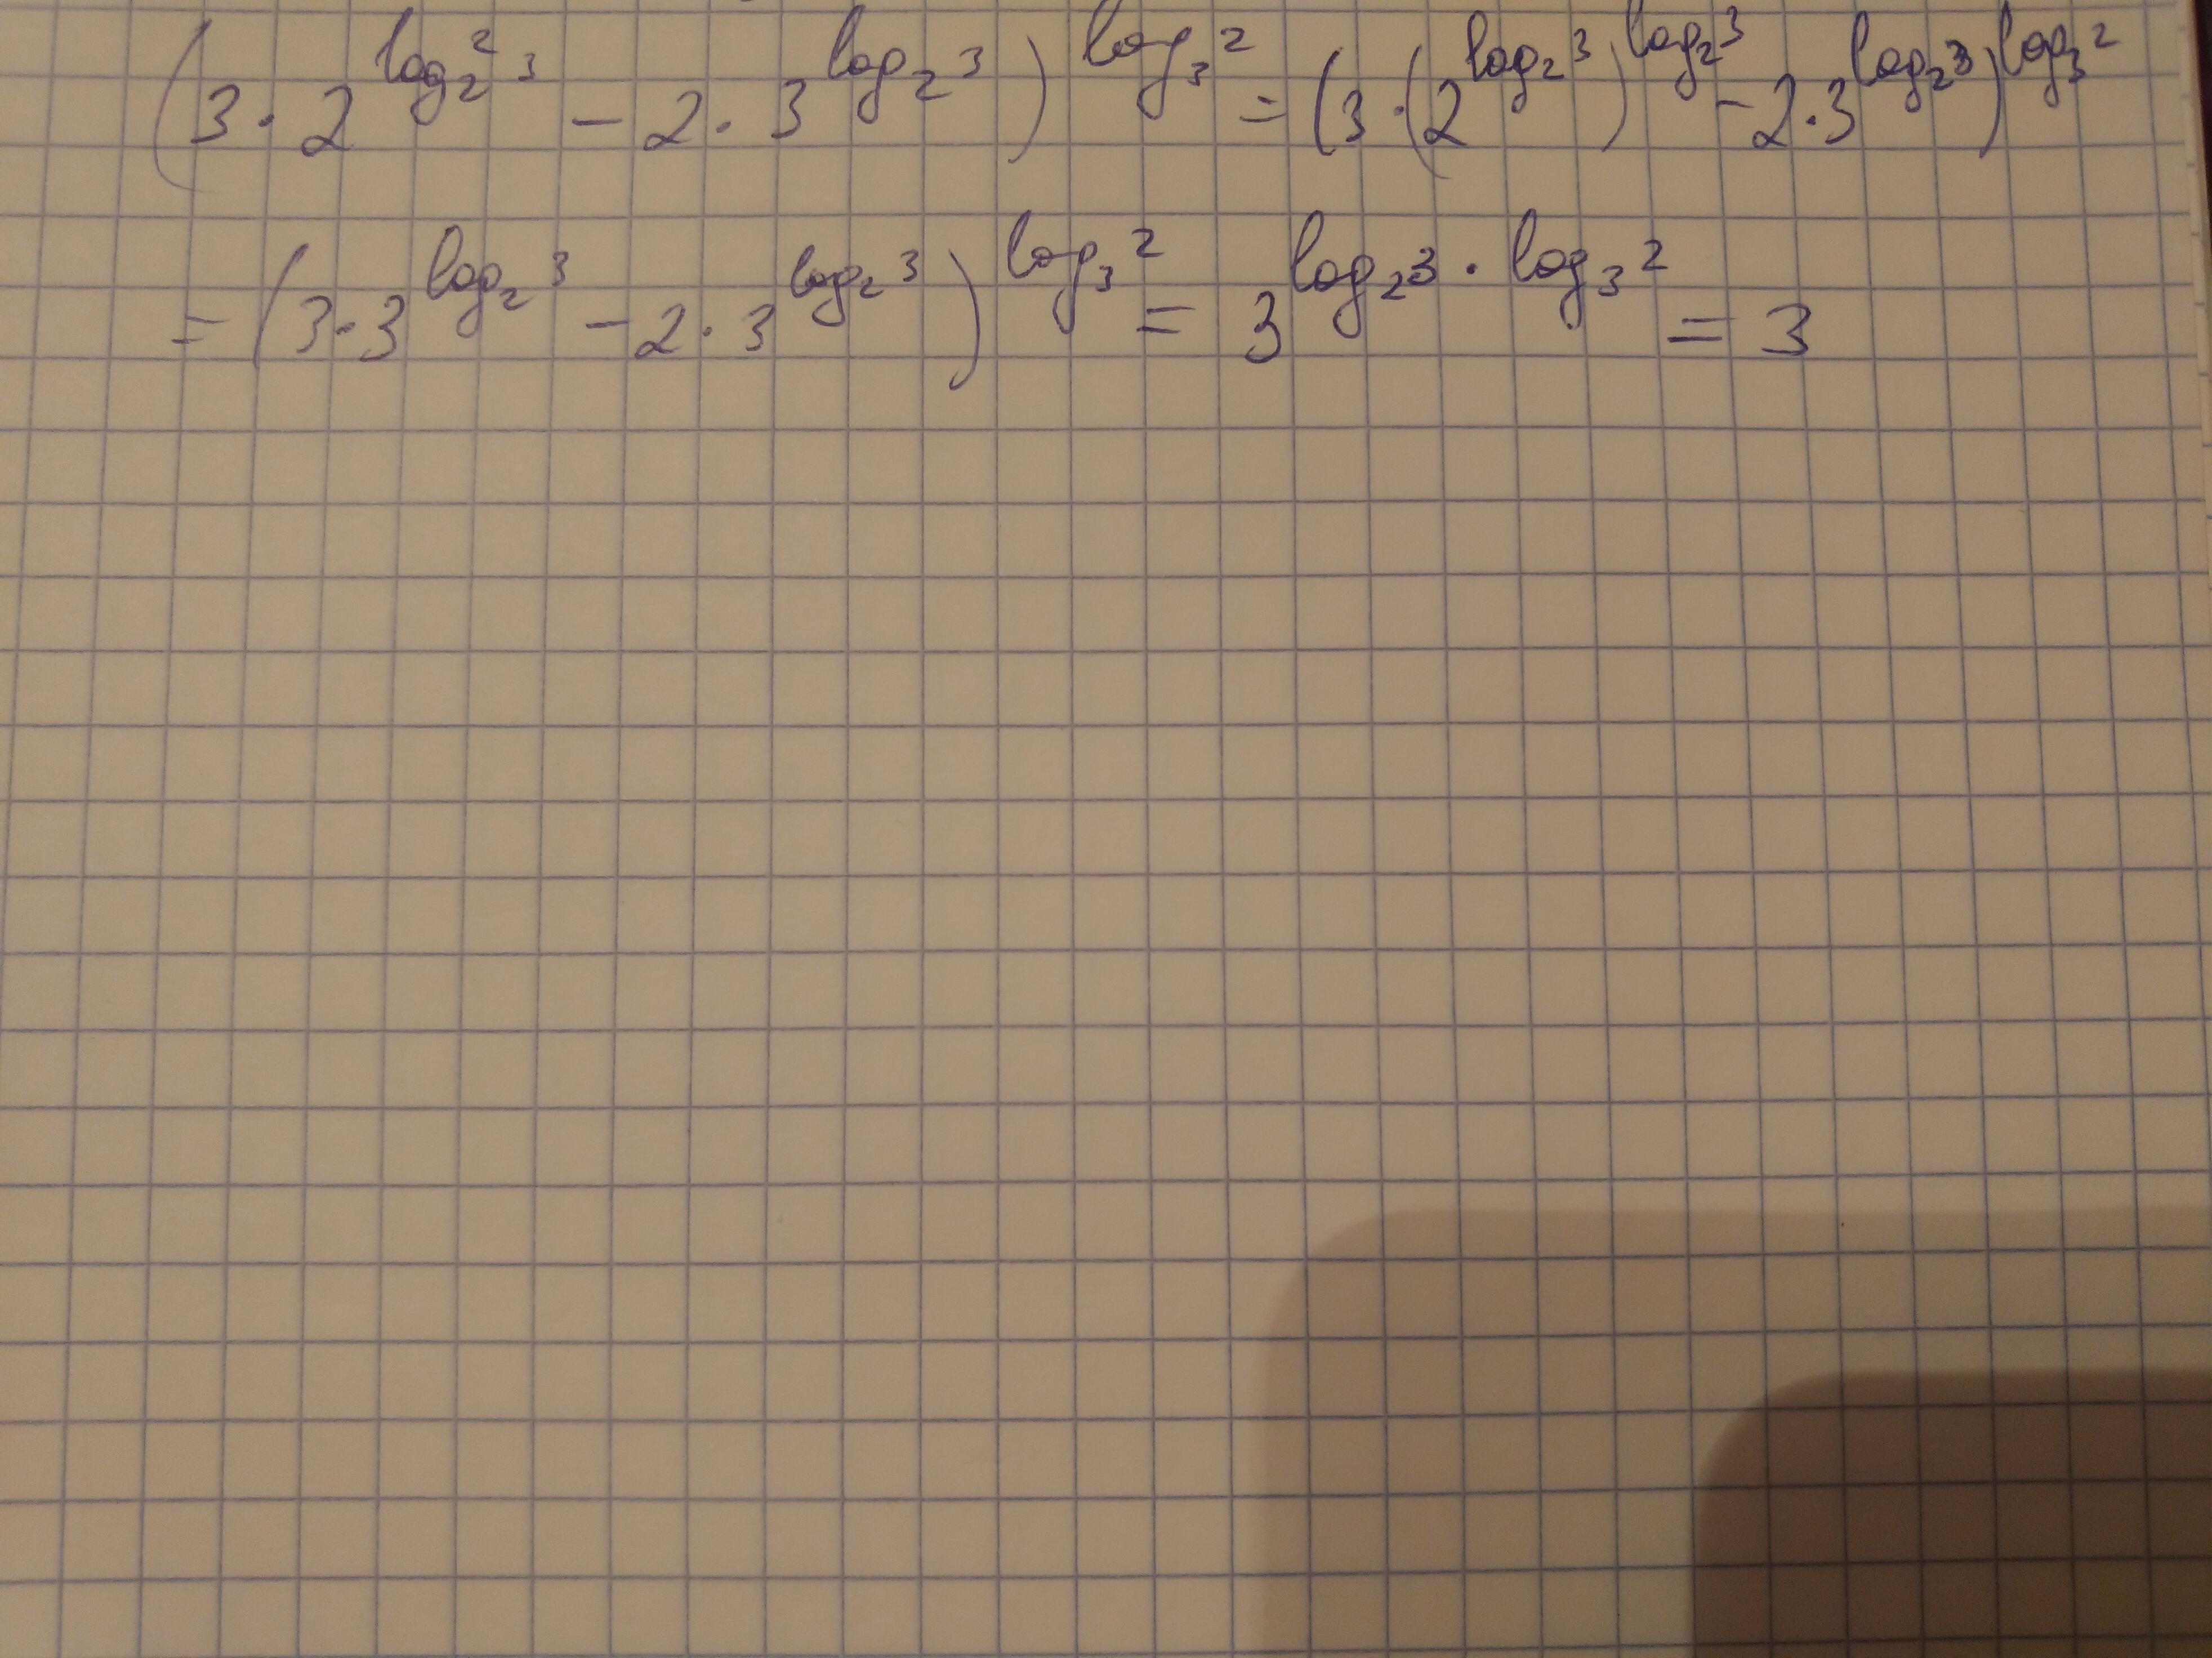 (3·2^{log₂²3} − 2·3^{log₂3})^{log₃2} = (3·(2^{log₂3})^{log₂3} − 2·3^{log₂3})^{log₃2}
= (3·3^{log₂3} − 2·3^{log₂3})^{log₃2} = 3^{log₂3·log₃2} = 3